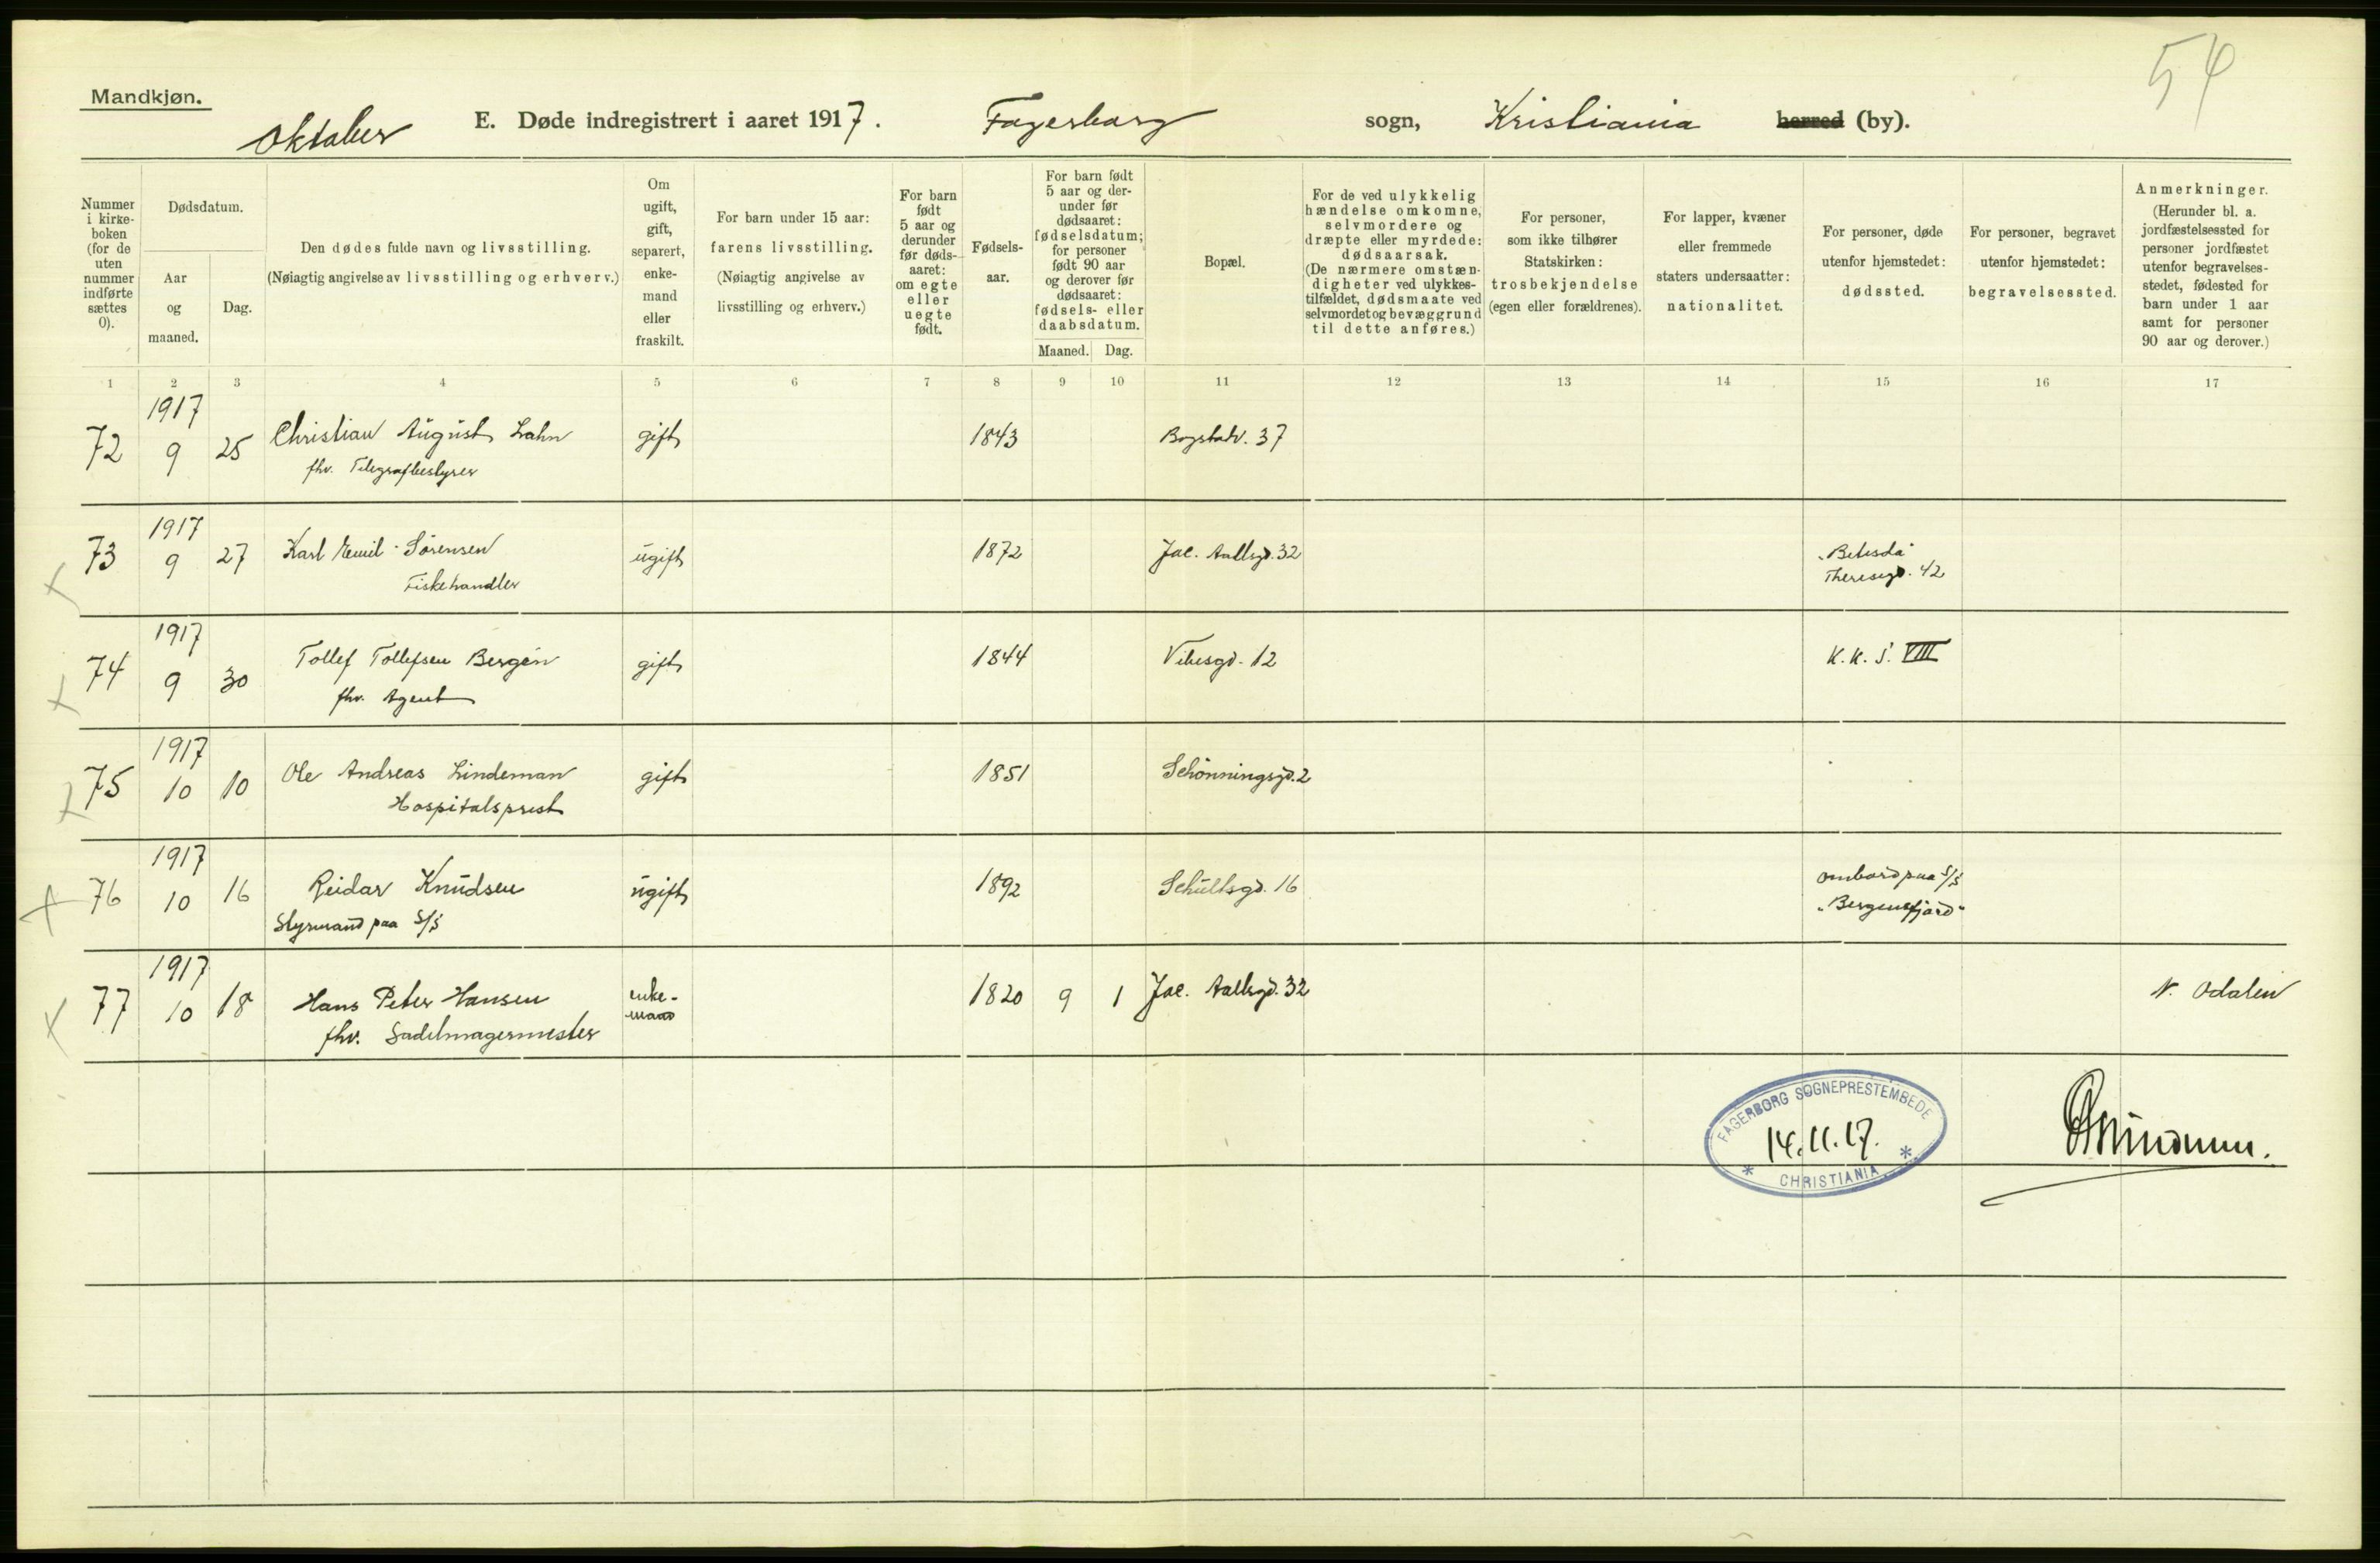 54
Mandkjøn.
Oktober E. Døde indregistrert i aaret 1917. Fagerborg sogn, Kristiania herred (by).
Nummer i kirke- boken (for de uten nummer indførte sættes 0).
Dødsdatum.
Aar og maaned.
Dag.
Den dødes fulde navn og livsstilling.
(Nøiagtig angivelse av livsstilling og erhverv.)
Om ugift, gift, separert, enke- mand eller fraskilt.
For barn under 15 aar:
farens livsstilling.
(Nøiagtig angivelse av
livsstilling og erhverv.)
For barn født 5 aar og derunder før døds- aaret: om egte eller uegte født.
Fødsels- aar.
For barn født 5 aar og der- under før dødsaaret: fødselsdatum; for personer født 90 aar og derover før dødsaaret: fødsels- eller daabsdatum.
Maaned. Dag.
Bopæl.
For de ved ulykkelig hændelse omkomne, selvmordere og dræpte eller myrdede: dødsaarsak. (De nærmere omstæn- digheter ved ulykkes- tilfældet, dødsmaate ved selvmordet og bevæggrund til dette anføres.)
For personer, som ikke tilhører Statskirken: trosbekjendelse (egen eller forældrenes).
For lapper, kvæner eller fremmede staters undersaatter: nationalitet.
For personer, døde utenfor hjemstedet: dødssted.
For personer, begravet utenfor hjemstedet: begravelsessted.
Anmerkninger. (Herunder bl. a. jordfæstelsessted for personer jordfæstet utenfor begravelses- stedet, fødested for barn under 1 aar samt for personer 90 aar og derover.)
1 2 3 4 5 6 7 8 9 10 11 12 13 14 15 16 17
1917
72 9 25 Christian August Lahn gift 1843 Bogstadv. 37
fhv. Telegrafbestyrer
1917
73 9 27 Karl Emil Sørensen ugift 1872 Jac. Aallsgd. 32 "Betesda"
Fiskehandler Theresegd. 42
1917
74 9 30 Tollef Tollefsen Bergén gift 1844 Vibesgd. 12 K. K. S. VIII
fhv. Agent
1917
75 10 10 Ole Andreas Lindeman gift 1851 Schønningsgd. 2
Hospitalsprest
1917
76 10 16 Reidar Knudsen ugift 1892 Schultsgd. 16 ombord paa S/S
Styrmand paa S/S "Bergensfjord"
1917
77 10 18 Hans Peter Hansen enke- mand 1820 9 1 Jac. Aallsgd. 32 N. Odalen
fhv. Sadelmagermester
FAGERBORG SOGNEPRESTEMBEDE
14.11.17.
* CHRISTIANIA *